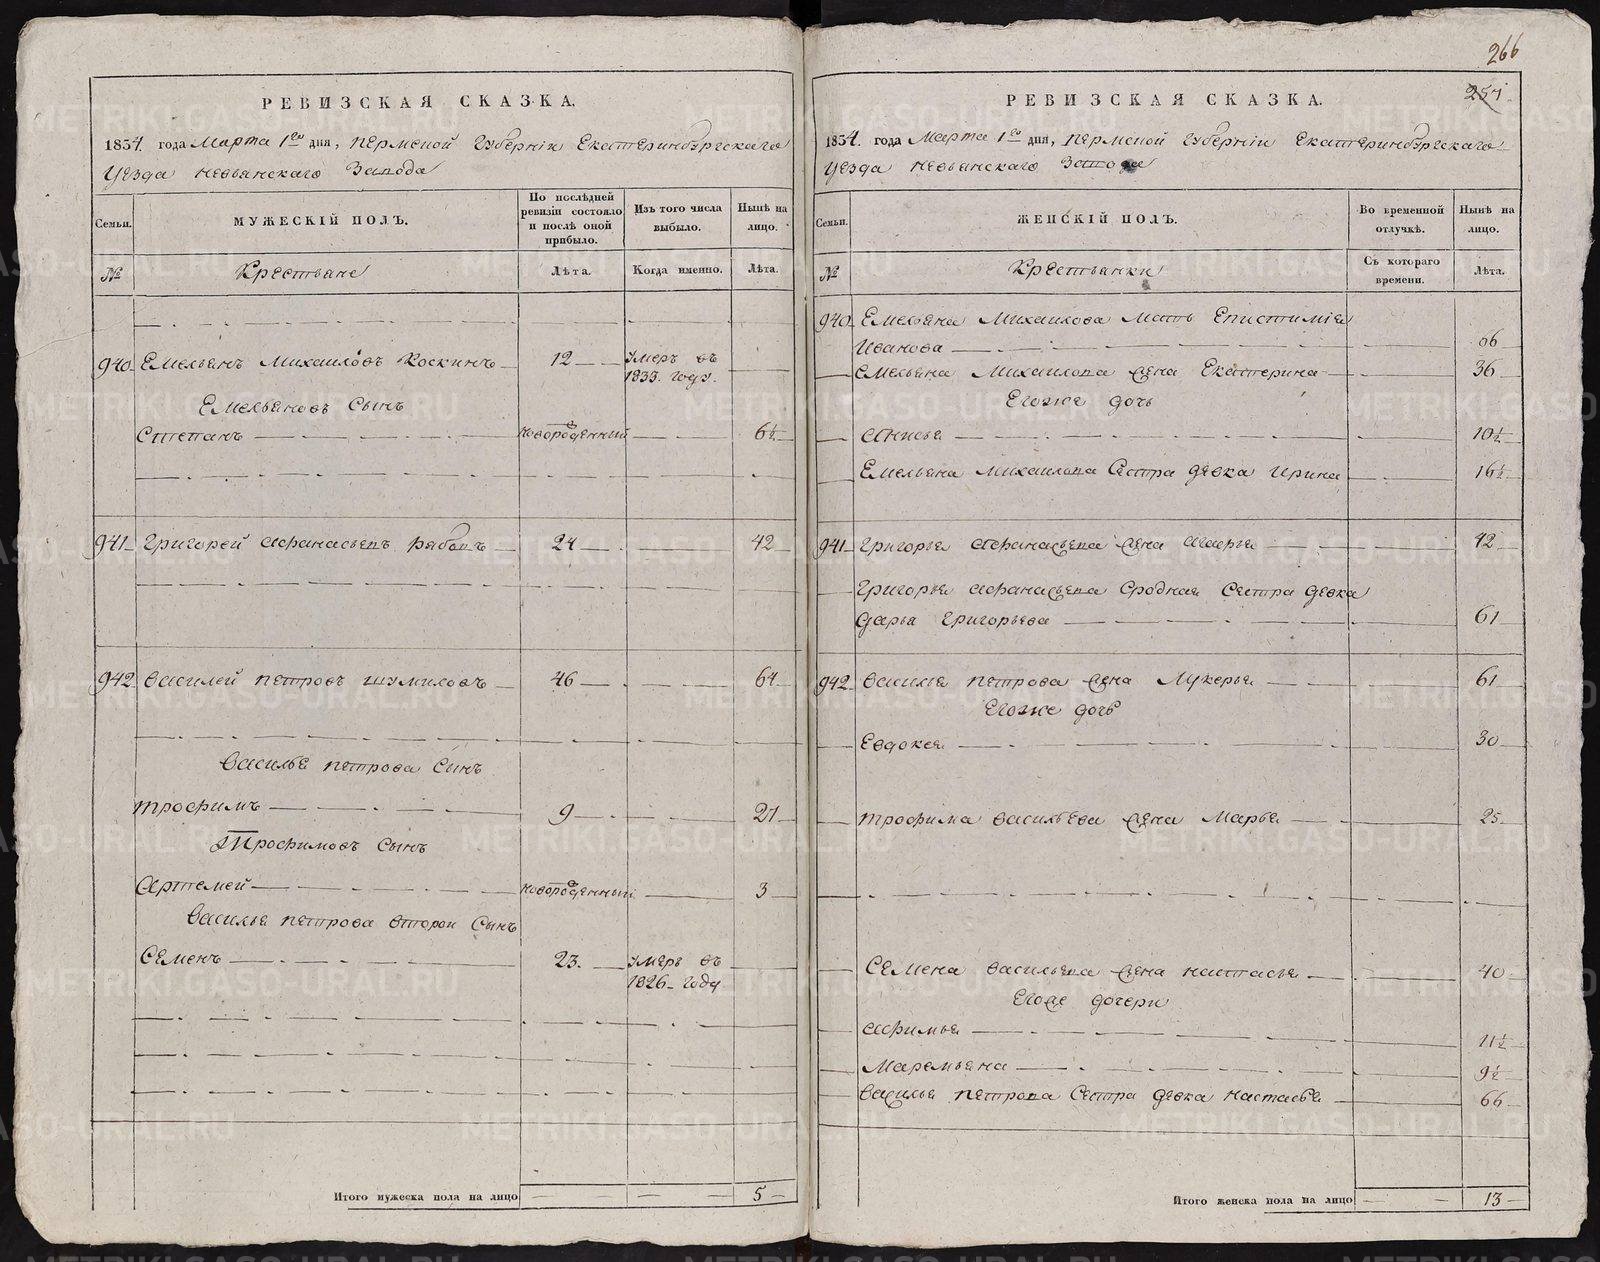 РЕВИЗСКАЯ СКАЗКА.
1834. года Марта 1го дня, Пермской Губернiи Екатеринбургскаго
Уезда Невьянскаго Завода
Семьи.
МУЖЕСКIЙ ПОЛЪ.
По послѣдней ревизiи состояло и послѣ оной прибыло.
Изъ того числа выбыло.
Нынѣ на лицо.
№
Крестьяне
Лѣта.
Когда именно.
Лѣта.
940 Емельянъ Михаиловъ Коскинъ 12 умеръ въ
1833. году.
Емельяновъ Сынъ
Степанъ новорожденный 6½
941 Григорей Афанасьевъ Рябовъ 24 42
942 Василей Петровъ Шумиловъ 46 64
Василья Петрова Сынъ
Трофимъ 9 27
Трофимовъ Сынъ
Артемей новорожденный 3
Василья Петрова второй Сынъ
Семенъ 23. умеръ въ
1826 году
Итого мужеска пола на лицо 5
266
254
РЕВИЗСКАЯ СКАЗКА.
1834. года Марта 1го дня, Пермской Губернiи Екатеринбургскаго
Уезда Невьянскаго Завода
Семьи.
ЖЕНСКIЙ ПОЛЪ.
Во временной отлучкѣ.
Нынѣ на лицо.
№
Крестьянки
Съ котораго времени.
Лѣта.
940 Емельяна Михаилова мать Епистимiя
Иванова 66
Емельяна Михаилова жена Екатерина 36
Егоже дочь
Анисья 10½
Емельяна Михаилова Сестра девка Ирина 16½
941 Григорья Афанасьева жена Марья 42
Григорья Афанасьева Сродная Сестра девка
Дарья Григорьева 61
942 Василья Петрова жена Лукерья 61
Егоже дочь
Евдокея 30
Трофима Васильева жена Марья 25
Семена Васильева жена Настасья 40
Егоже дочери
Афимья 11½
Маремьяна 9½
Василья Петрова Сестра девка Настасья 66
Итого женска пола на лицо 13